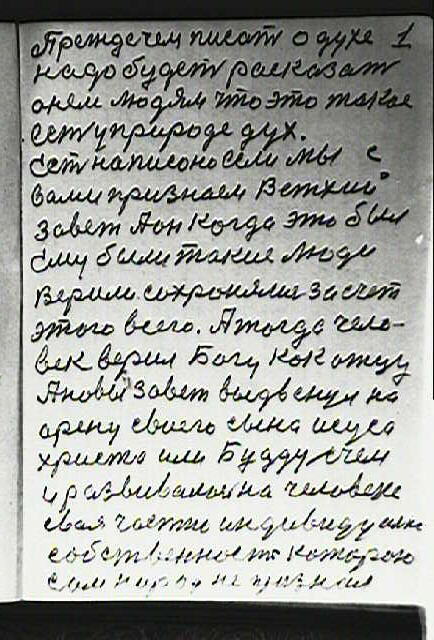 Преждечем писат о духе 1
надо будет расказат
онем людям что это такое
ест уприроде дух.
Ест написоно если мы с
вами признаем Ветхий
завет Аон когда это был
ему были такие люди
верили. сохроняли засчет
этого всего. Атогда чело-
век верил Богу как отцу
Ановый завет выдвенул на
арену своего сына исуса
христа или Будду счем
и развивалои на человеке
своя части индивидуалн
собственност которою
сам народ не признал